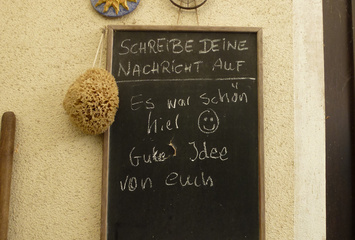 SCHREIBE DEINE
NACHRICHT AUF
Es war schön
hier
Gute Idee
von euch